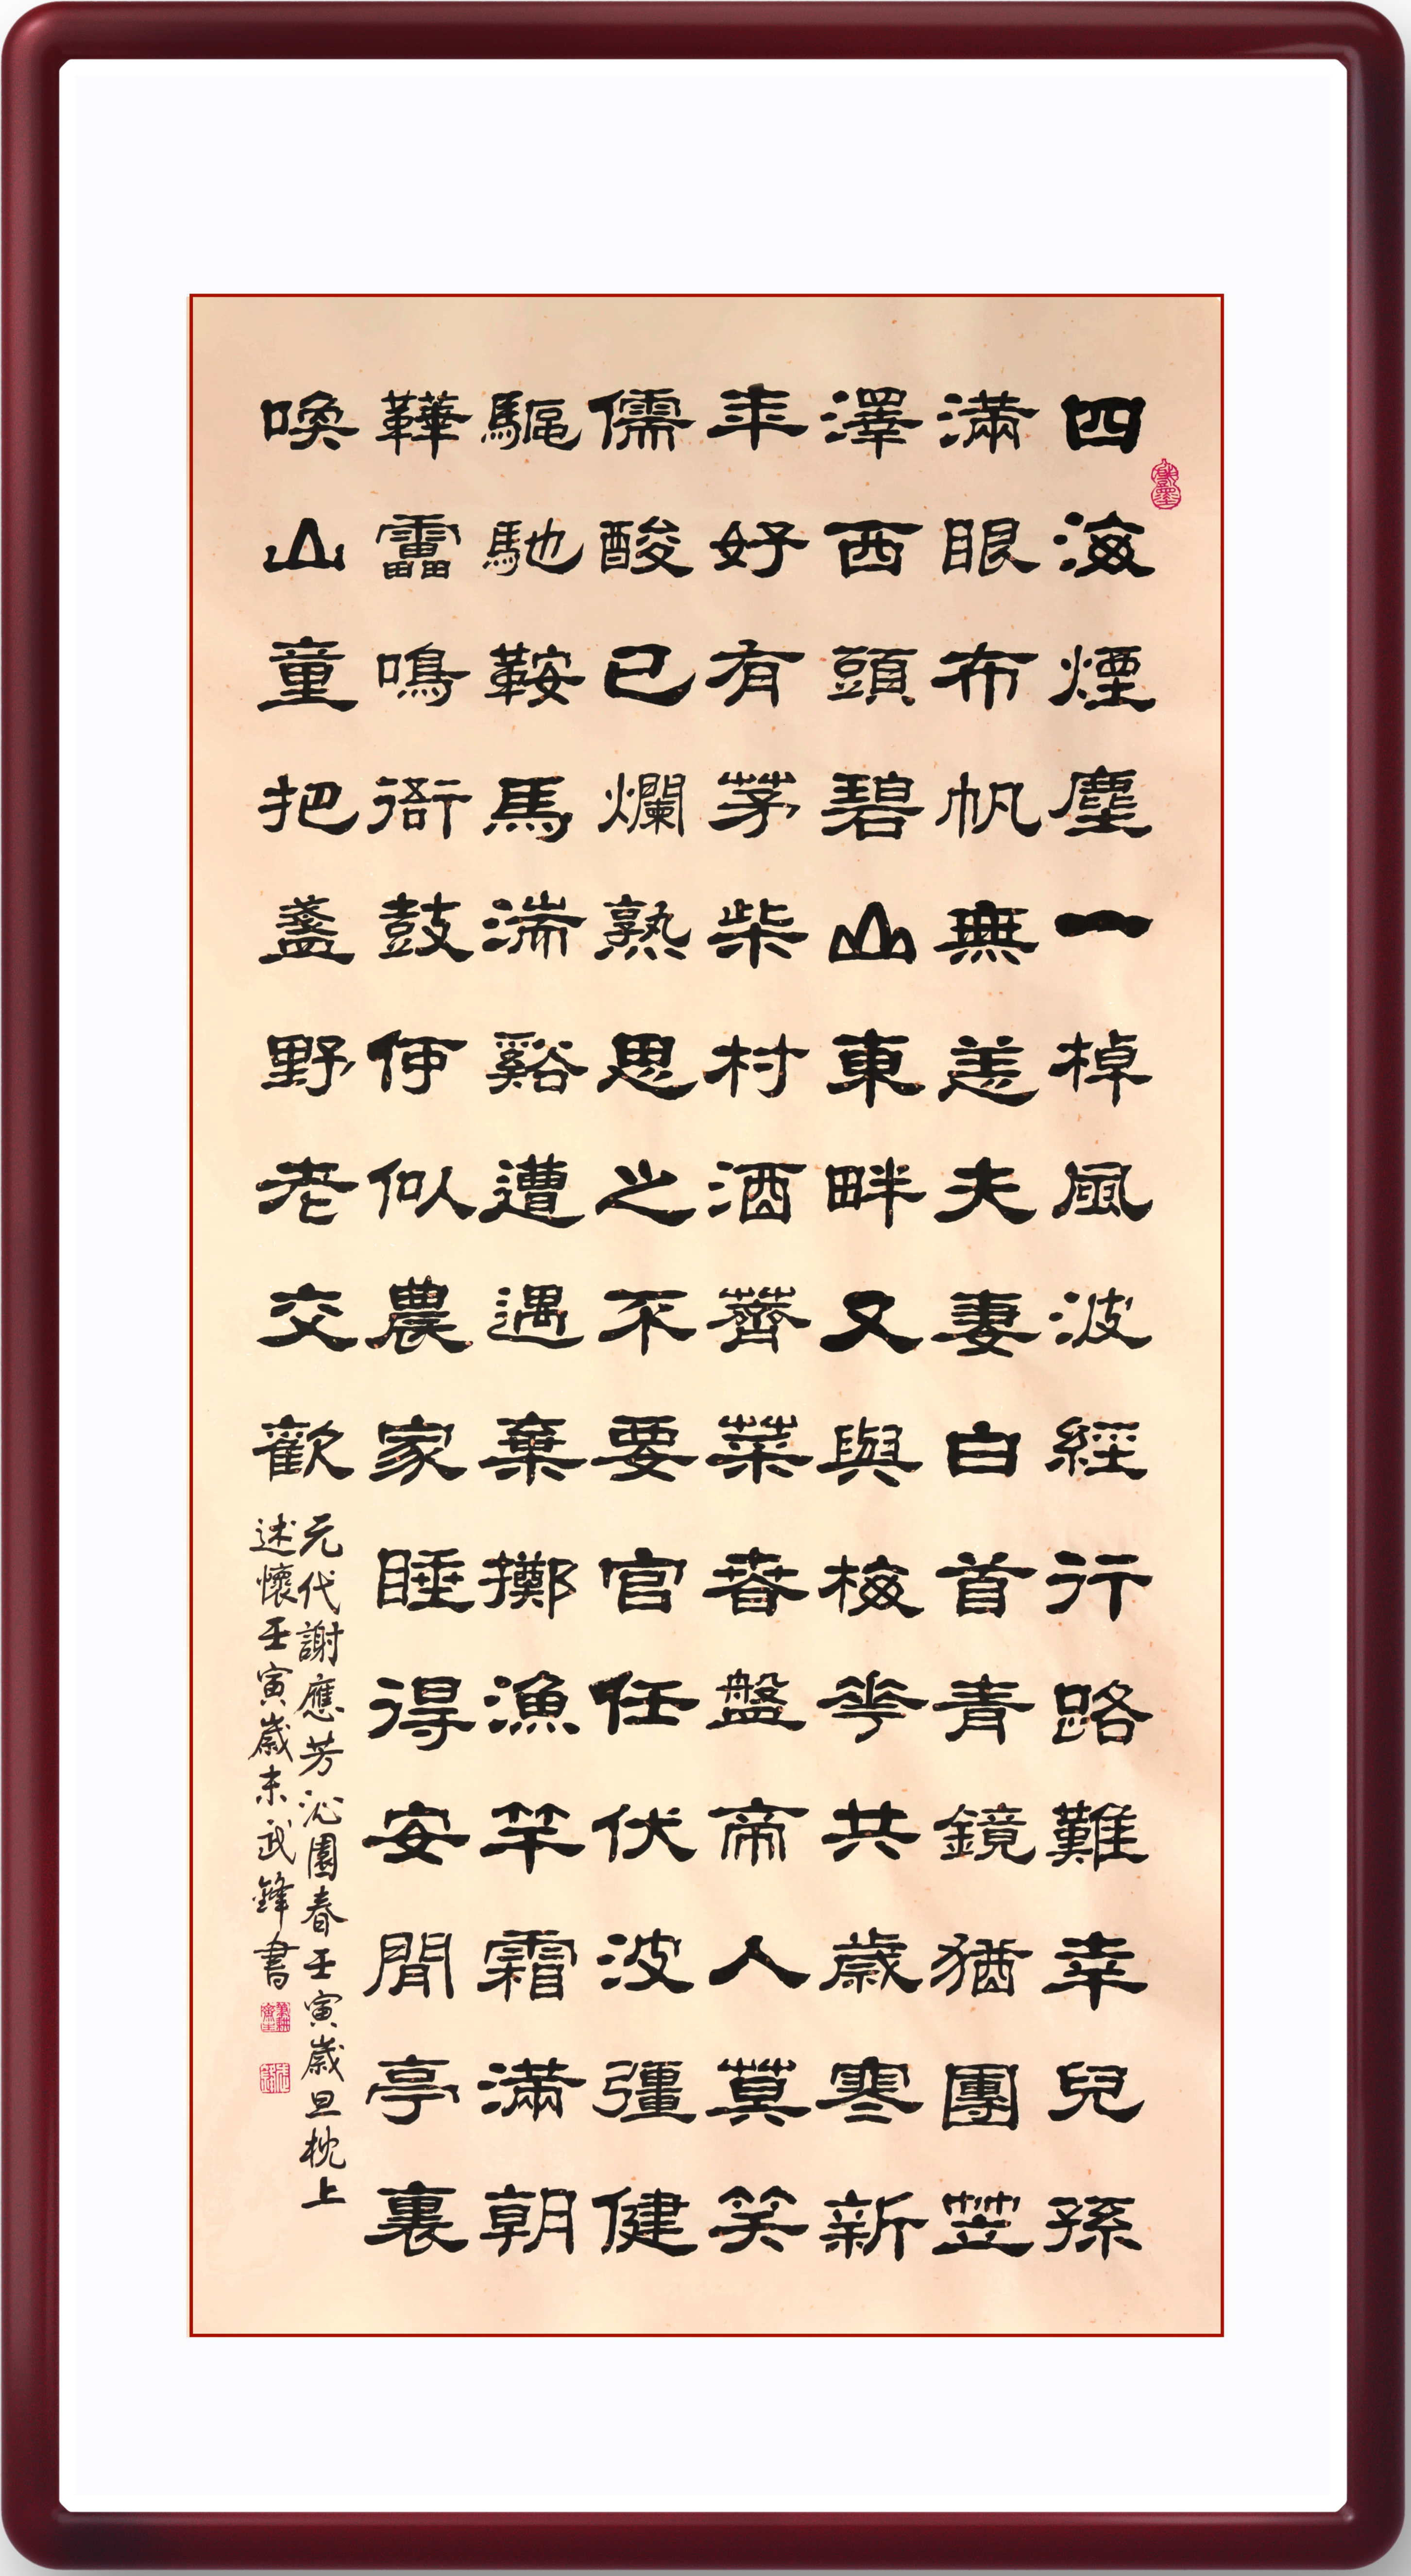 四海煙塵一棹風波經行路難幸兒孫
滿眼布帆無恙夫妻白首青鏡猶團笠
澤西頭碧山東畔又與梅花共歲寒新
年好有茅柴村酒薺菜春盤帝人莫笑
儒酸已爛熟思之不要官任伏波彊健
驅馳鞍馬湍谿遭遇棄擲漁竿霜滿朝
鞾雷鳴衙鼓何似農家睡得安閒亭裏
喚山童把盞野老交歡
元代謝應芳沁園春壬寅歲旦枕上
述懷壬寅歲末武鋒書